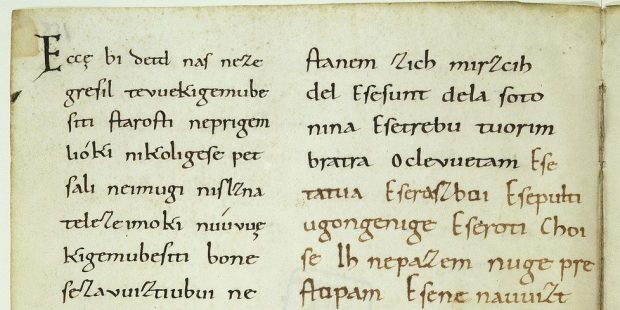 Eccę bi detd naſ neze
greſil tevuekigemube
ſiti ſtaroſti neprigem
lióki nikoligeſe pet
ſali neimugi niſlzna
telezeimoki nuúvuę
kigemubeſiti bone
ſezavuiztiubui ne
ſtanem zich mirzcih
del Eſeſunt dela ſoto
nina Eſetrebu tuorim
bratra Oclevuetam Eſe
tatua Eſerazboi Eſepulti
ugongenige Eſeroti Choi
ſe Ih nepazem nuge pre
ſtupam Eſene nauuizt